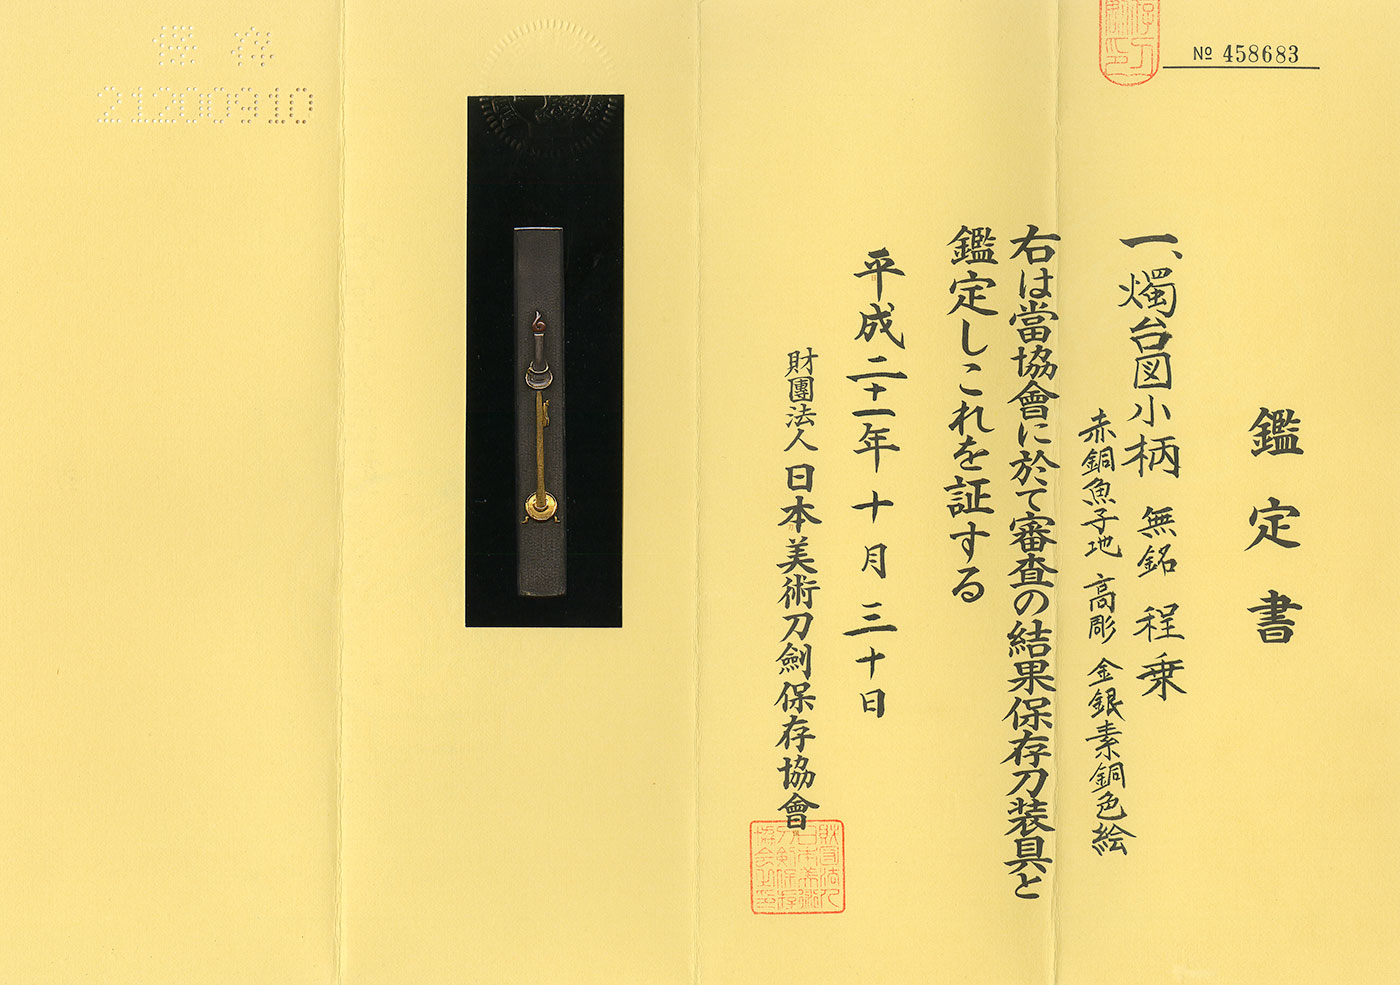 № 458683
鑑定書
一、燭台図小柄 無銘 程乗
赤銅魚子地 高彫 金銀素銅色絵
右は當協會に於て審査の結果保存刀装具と
鑑定しこれを証する
平成二十一年十月三十日
財團法人日本美術刀劍保存協會
保存
21200910